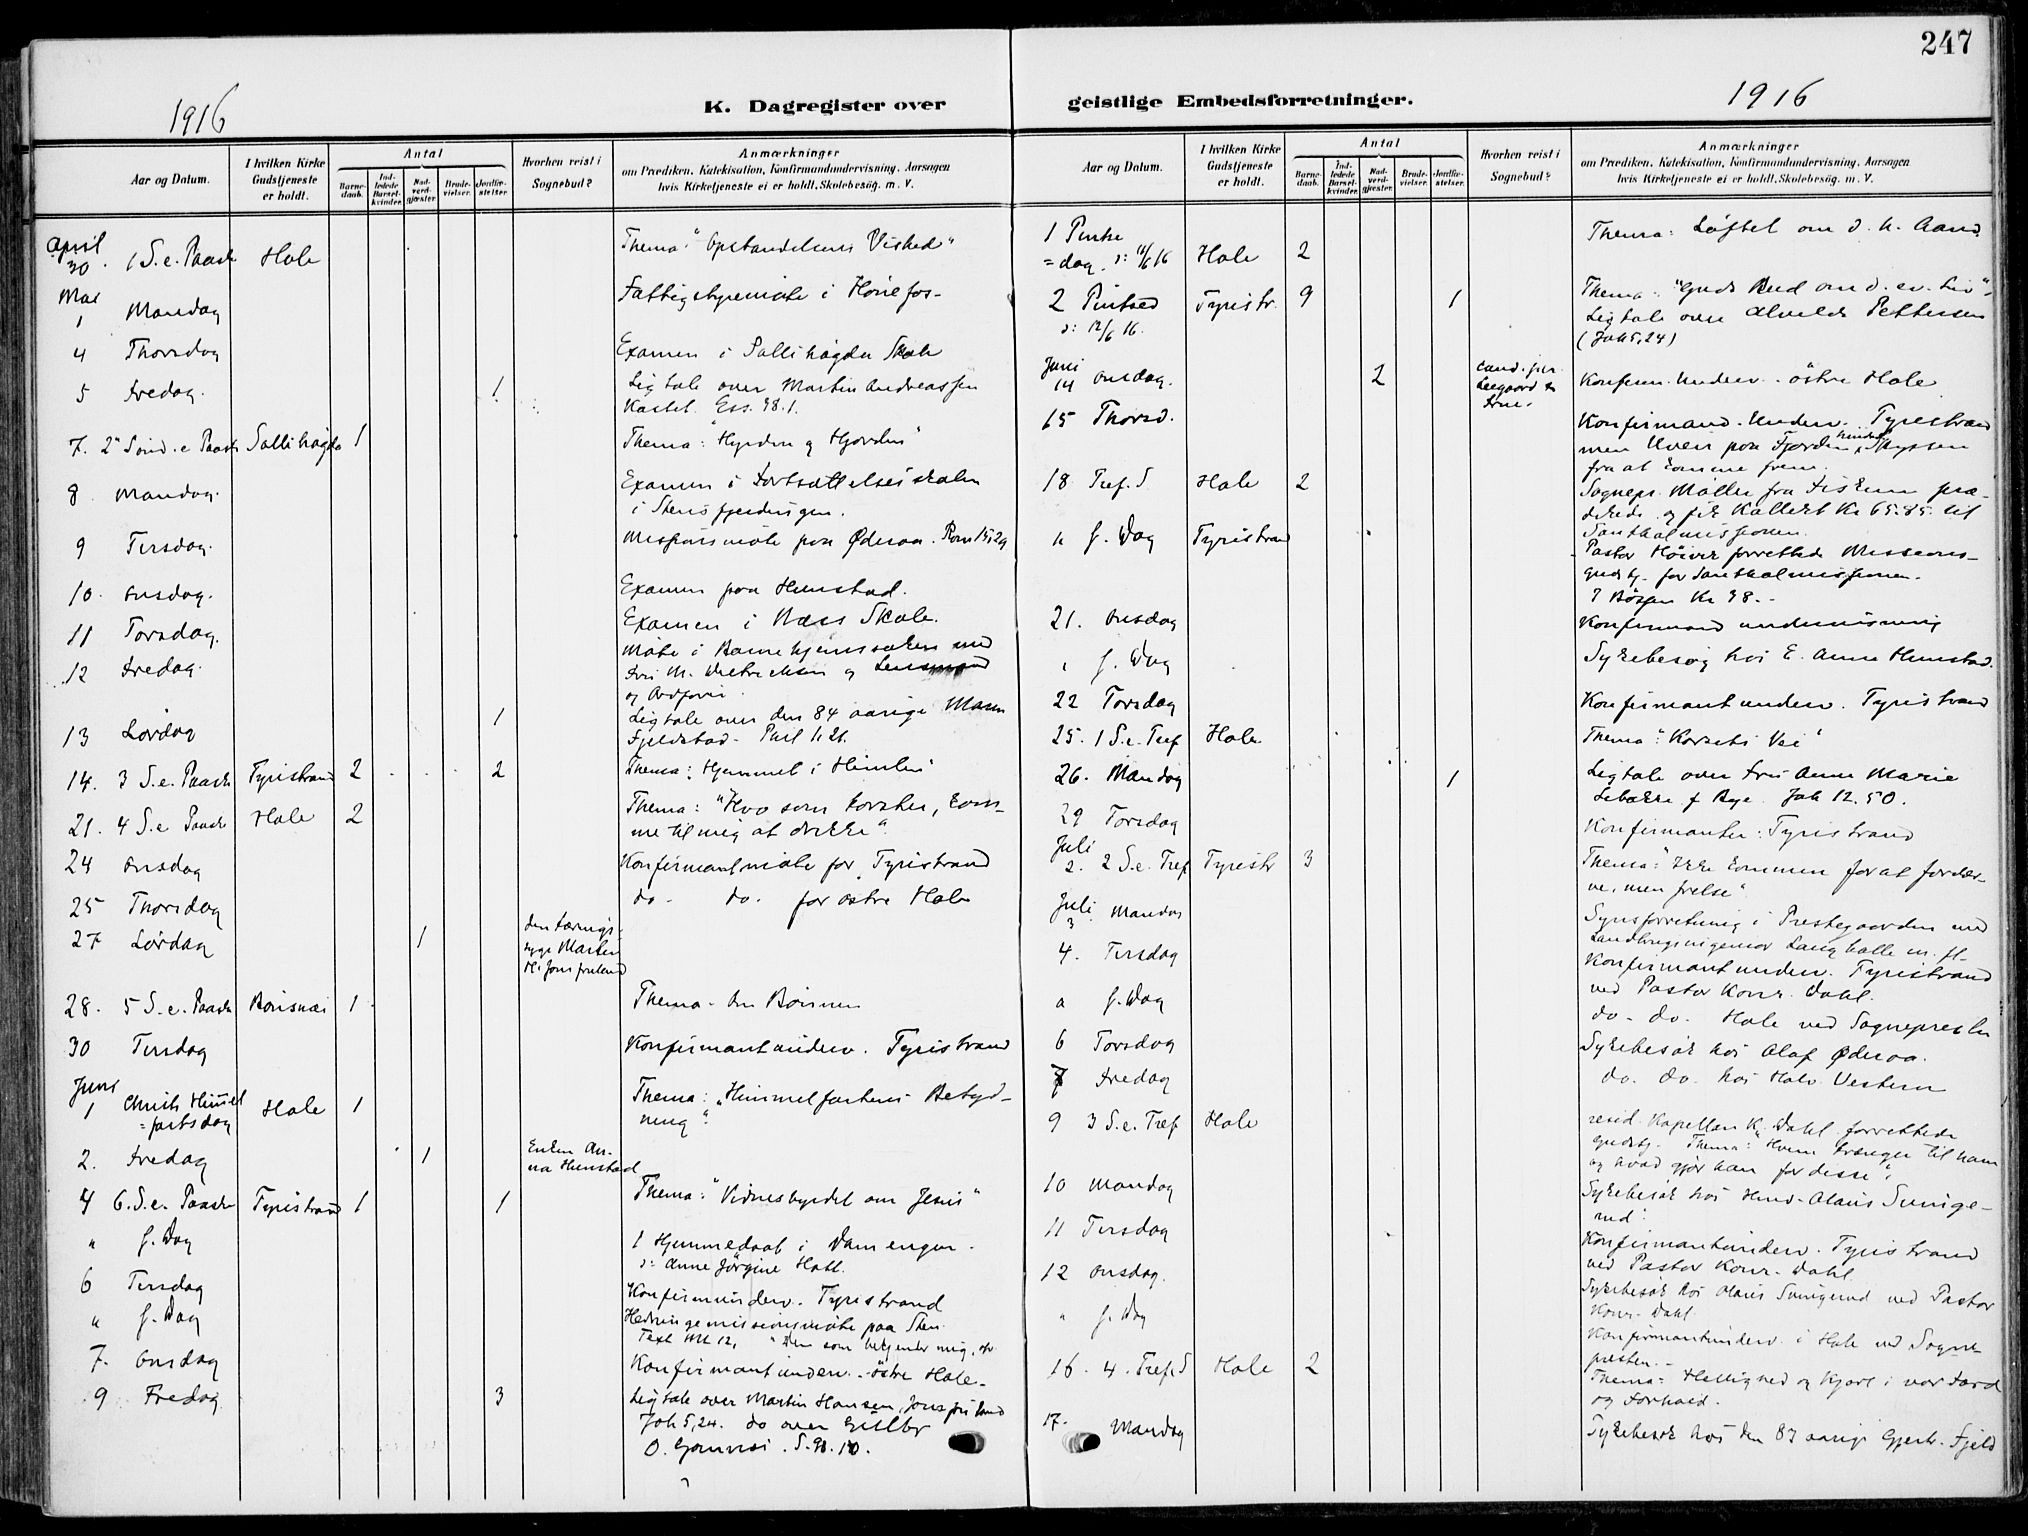 247
1916
K. Dagregister over
geistlige Embedsforretninger.
1916
Aar og Datum.
I hvilken Kirke Gudstjeneste er holdt.
Antal
Barne-daab.
Ind-ledede Barsel-kvinder.
Nad-verd-gjæster.
Brude-vielser.
Jordfæ-stelser.
Hvorhen reist i Sognebud?
Anmærkninger
om Prædiken. Katekisation, Konfirmandundervisning. Aarsagen
hvis Kirketjeneste ei er holdt. Skolebesøg. m. V.
April
30. 1 S. e. Paask Hole Thema: "Opstandelsens Vished"
Mai
1 Mandag Fattigstyremøte i Hønefos-
4 Thorsdag Examen i Sollihøgda Skole
5 Fredag. 1 Ligtale over Martin Andreassen
Kastet. Ess. 38.1.
7. 2" Sønd. e Paask Sollihøgda 1 Thema: "Hyrden og Hjorden"
8 Mandag. Examen i Fortsættelsesskolen
i Stensfjerdingen.
9 Tirsdag. Missionsmøte paa Øderaa. Rom 15,29
10. Onsdag. Examen paa Hunstad.
11 Torsdag. Examen i Næss Skole.
12 Fredag. Møte i Barnehjemssaken med
og Ordfører.
13 Lørdag 1 Ligtale over den 84 aarige Maren
Fjeldstad. Phil 1.21.
14. 3 S. e. Paask Tyristrand 2 2 Thema: "Hjemmet i Himlen"
21. 4 S. e Paask Hole 2 Thema: "Hvo som tørster, kom-
me til mig at drikke".
24 Onsdag Konfirmantmøte for Tyristrand
25 Thorsdag do. do. for østre Hole
27 Lørdag 1 den tærings-
syge Martin
H. Jonsfreland
28. 5 S. e. Paask Bønsnæs 1 Thema. Om Bønnen
30 Tirsdag Konfirmantunderv. Tyristrand
Juni
1 Christi Himmel
=fartsdag Hole 1 Thema: "Himmelfartens Betyd-
ning".
2. Fredag 1 Enken An-
na Hunstad
4 6. S. e. Paask Tyristrand 1 1 Thema: "Vidnesbyrdet om Jesus"
" s. Dag 1 Hjemmedaab i Damengen.
ɔ: Anne Jørgine Hatl.
6 Tirsdag Konfirmunderv. Tyristrand
" s. Dag Hedningemissionsmøte paa Sten.
Text Mt 12, "Den som bekjender mig, osv
7. Onsdag Konfirmantunderv. østre Hole.
9 Fredag 3 Ligtale over Martin Hansen, Jonsfreland
Joh 5,24. do over Gullbr
O. Gomnæs. S. 90.10.
Aar og Datum.
I hvilken Kirke Gudstjeneste er holdt.
Antal
Barne-daab.
Ind-ledede Barsel-kvinder.
Nad-verd-gjæster.
Brude-vielser.
Jordfæ-stelser.
Hvorhen reist i Sognebud?
Anmærkninger
om Prædiken. Katekisation, Konfirmandundervisning. Aarsagen
hvis Kirketjeneste ei er holdt. Skolebesøg. m. V.
1 Pinse
=dag. ɔ: 11/6 16 Hole 2 Thema: Løftet om d. h. Aand.
2 Pintsed
ɔ: 12/6 16. Tyristr. 9 1 Thema: "Guds Bud om d. ev. Liv"
Ligtale over Alvilde Pettersen
(Joh 5,24)
Juni
14 Onsdag. 2 Konferm. Underv. østre Hole
15 Thorsd. Konfirmand. Underv. Tyristrand
men Uveir paa Fjorden hindret Skyssen
fra at komme frem.
18 Tref. S Hole 2 Sognepr. Møller fra Fiskum præ-
dikede og fik Kollekt Kr 65.85. til
Santhalmissionen.
" s. Dag Tyristrand Pastor Høiver forrettede Missions-
gudstj. for Santhalmissionen.
I Bøssen Kr 38.-
21. Onsdag Konfirmand undervisning
" s. Dag Sykebesøg hos E. Anna Hunstad.
22 Torsdag Konfirmantunderv. Tyristrand
25. 1 S. e. Tref Hole Thema: "Korsets Vei"
26. Mandag 1 Ligtale over Fru Anne Marie
Lebakke f Bye. Joh 12.50.
29 Torsdag Konfirmanter: Tyristrand
Juli
2. 2 S. e. Tref Tyristr 3 Thema: "Ikke kommen for at fordær-
ve, men frelse".
Juli
3. Mandag Synsforretning i Prestegaarden med
Landbrugsingeniør Langballe m. fl.
4. Tirsdag Konfirmantunderv. Tyristrand
ved Pastor Konr. Dahl.
" s. Dag do. do. Hole ved Sognepresten
6 Torsdag Sykebesøk hos Olaf Øderaa.
7 Fredag do. do. hos Halv. Vestern
9 3 S. e. Tref Hole resid. Kapellan K. Dahl forrettede
gudstj. Thema: "Hvem trænger til ham
og hvad gjør han for disse".
10 Mandag Sykebesøk hos Husm. Olaus Svinge-
rud.
11 Tirsdag Konfirmantunderv. Tyristrand
ved Pastor Konr. Dahl.
12 Onsdag. Sykebesøk hos Olaus Svingerud ved Pastor
Konr. Dahl.
" s. Dag Konfirmantunderv. i Hole ved Sogne-
presten.
16. 4. Tref. S Hole 2 Thema: Hellighed og Kjærl. i vor Færd
og Forhold.
17. Mandag Sykebesøk hos den 87 aarige Gjert. Fjeld